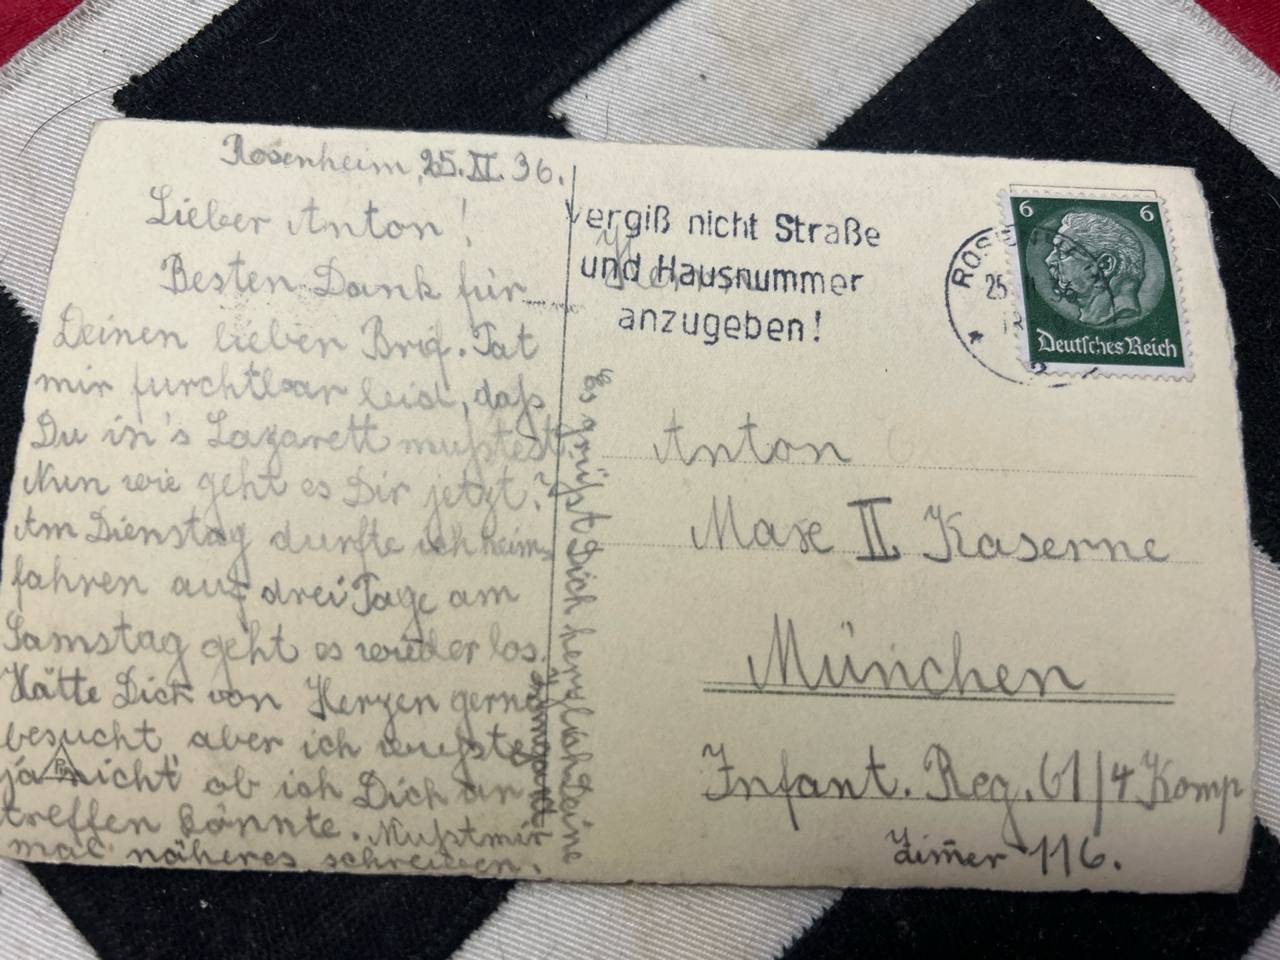 Rosenheim, 25.XI.36.
Lieber Anton!
Besten Dank für
Deinen lieben Brif. Tat
mir furchtbar leid, daß
Du in's Lazarett mußtest.
Nun wie geht es Dir jetzt?
Am Dienstag durfte ich heim
fahren auf drei Tage am
Samstag geht es wieder los.
Hätte Dich von Herzen gerne
besucht aber ich wußte
ja nicht ob ich Dich an
treffen könnte. Mußt mir
mal näheres schreiben.
Es grüßt Dich herzlich Deine
Vergiß nicht Straße
und Hausnummer
anzugeben!
ROS
25
6 6
Deutsches Reich
Anton
Maxe II Kaserne
München
Infant. Reg. 61/4 Komp
Zimer 116.